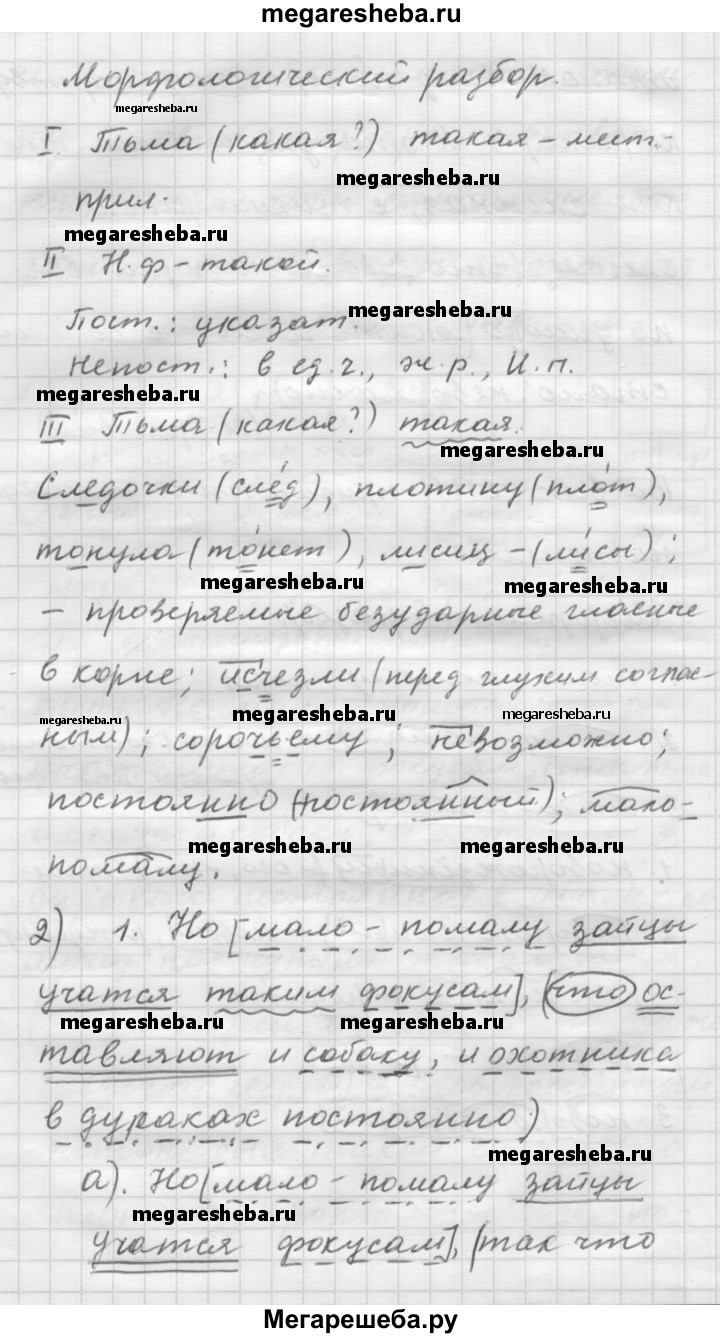 megaresheba.ru
Морфологический разбор.
megaresheba.ru
I. Тьма (какая?) такая – мест.-
megaresheba.ru
прил.
megaresheba.ru
II Н.ф – такой.
Пост.: указат.
megaresheba.ru
Непост.: в ед.ч., ж.р., И.п.
megaresheba.ru
III Тьма (какая?) такая.
megaresheba.ru
Следочки (сле́д), плотину (пло́т),
тонула (то́нет), лисиц – (ли́сы);
megaresheba.ru megaresheba.ru
– проверяемые безударные гласные
в корне; исчезли (перед глухим соглас-
megaresheba.ru megaresheba.ru
ным); сорочьему; невозможно;
постоянно (постоянный); мало-
megaresheba.ru megaresheba.ru
помалу.
2) 1. Но [мало - помалу зайцы
учатся таким фокусам], (что ос-
megaresheba.ru megaresheba.ru
тавляют и собаку, и охотника
в дураках постоянно)
megaresheba.ru
а). Но [мало - помалу зайцы
megaresheba.ru
учатся фокусам], (так что
Мегарешеба.ру